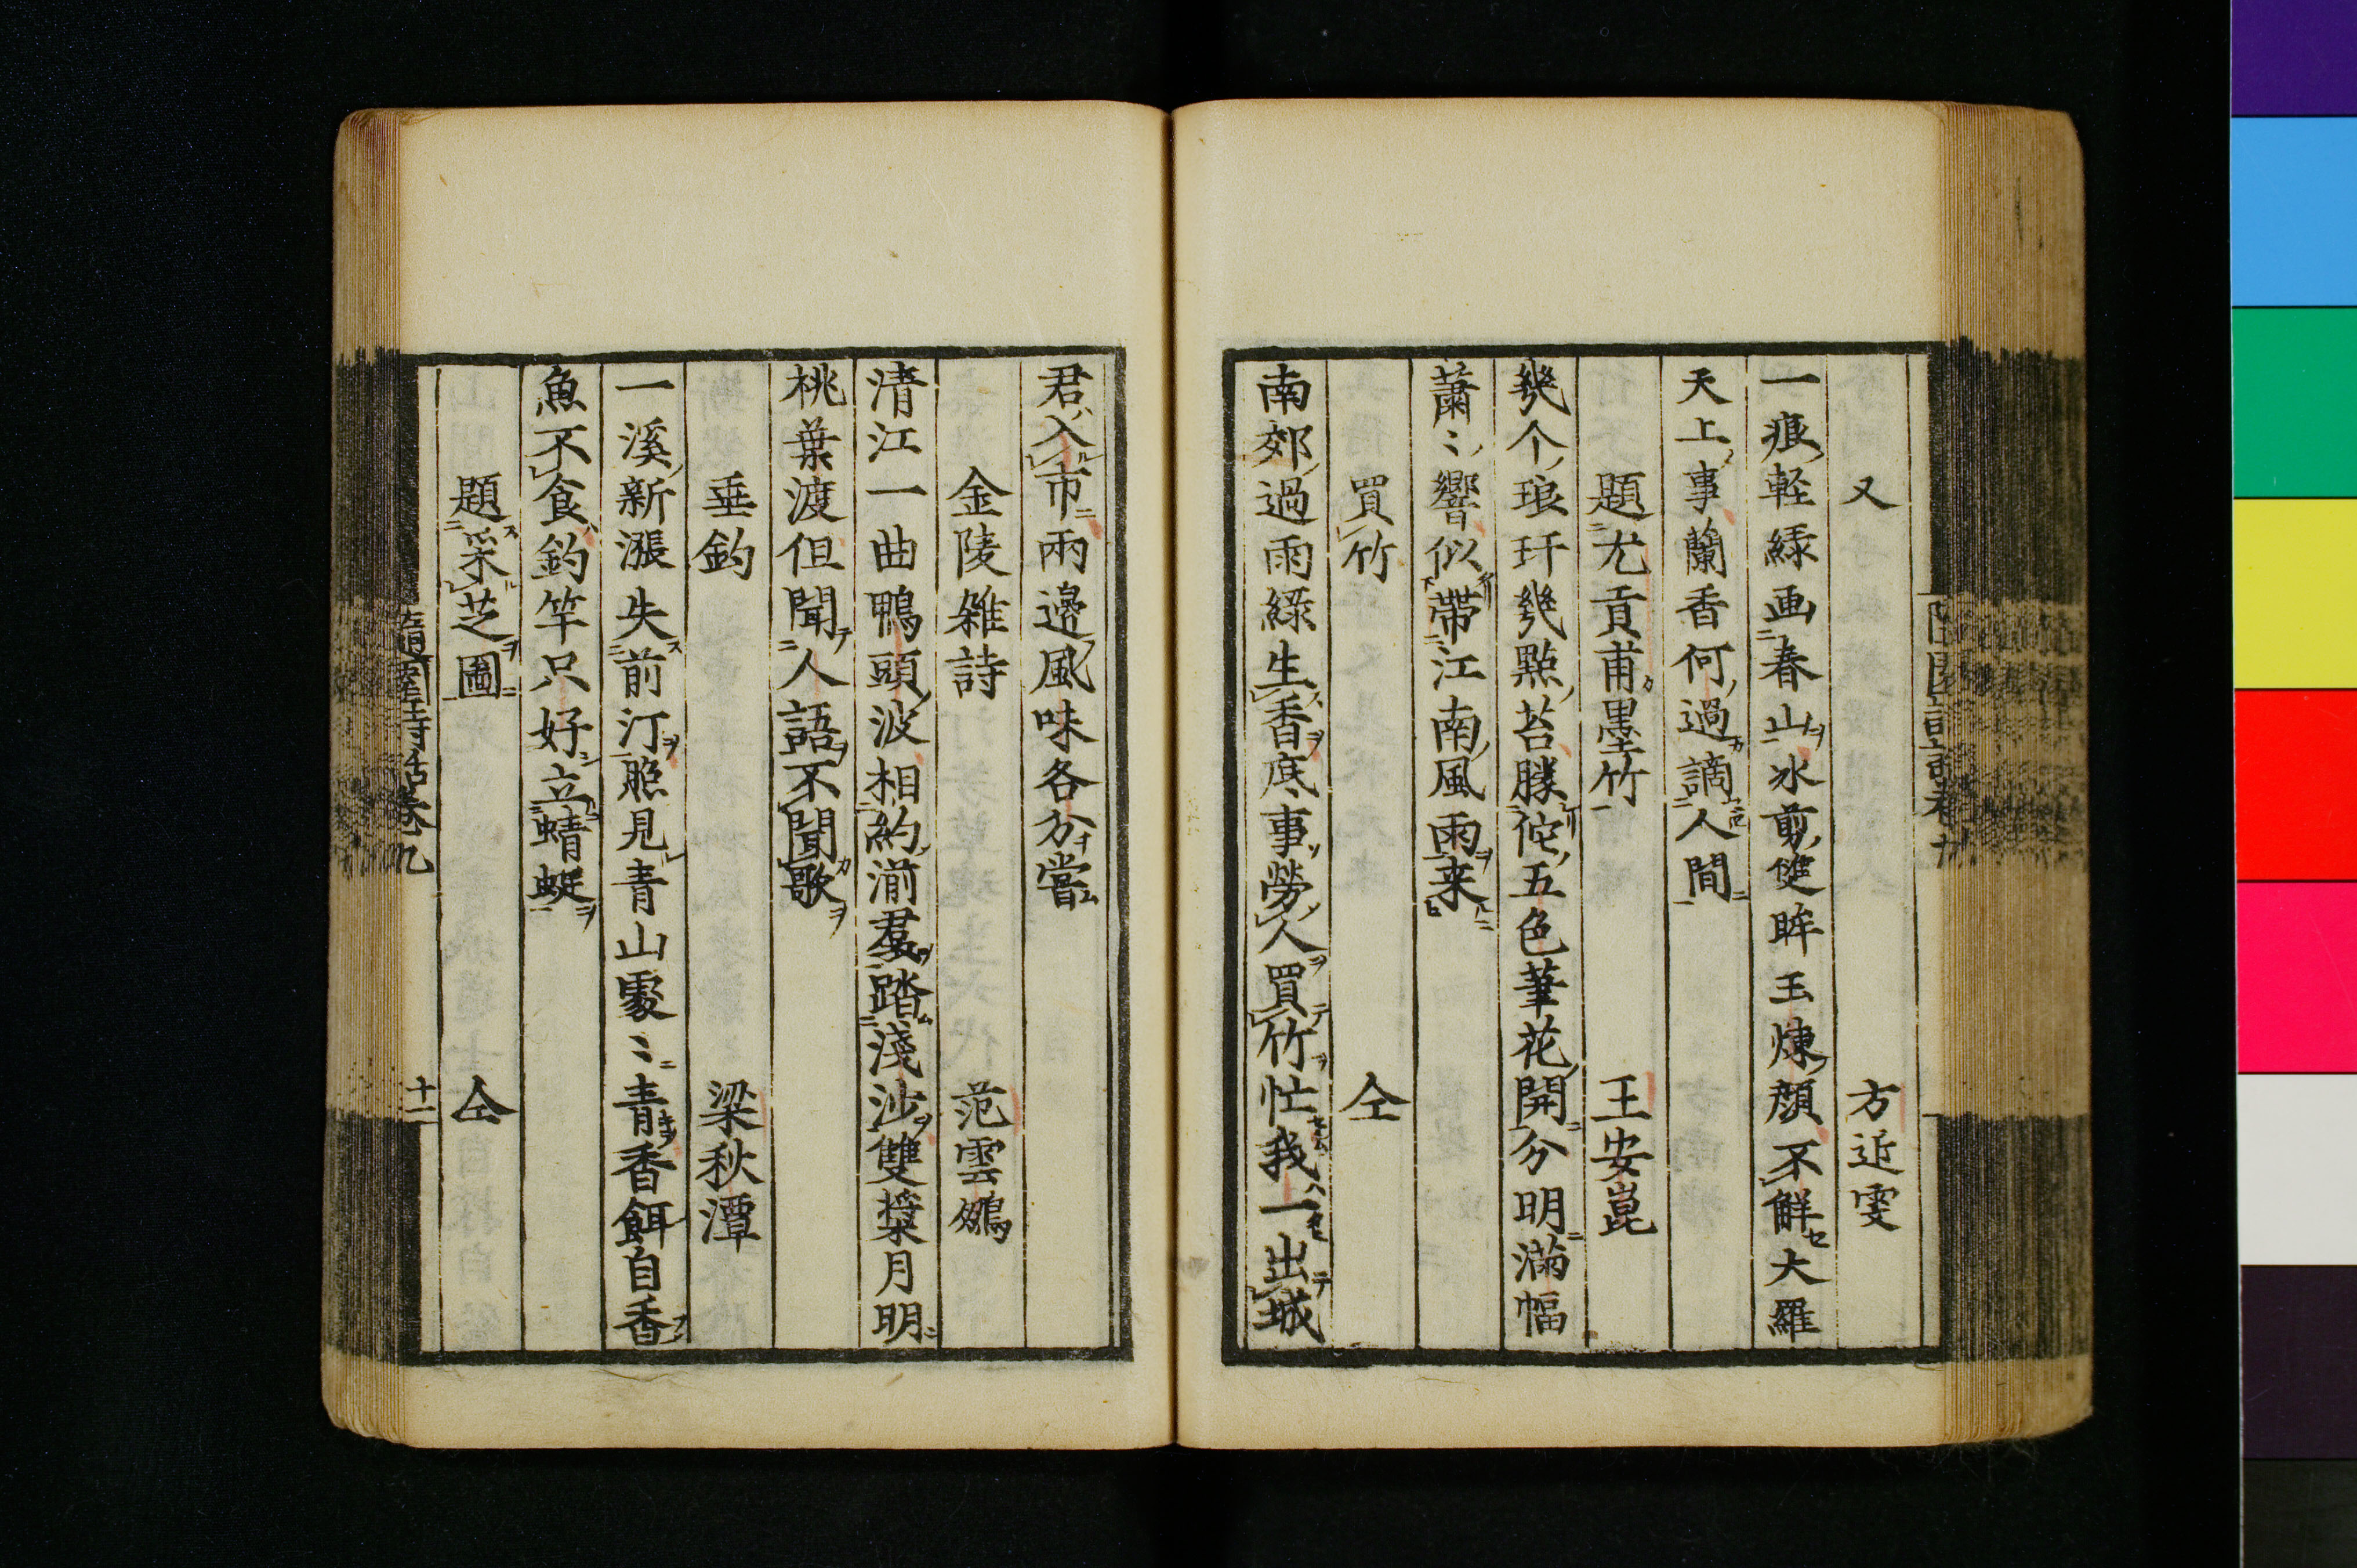 又 方近雯
一痕軽緑画春山氷剪雙眸玉煉顔不解大羅
天上事蘭香何過謫人間
題尤貢甫墨竹 王安崑
幾个琅玕幾點苔勝侘五色筆花開分明滿幅
蕭〻響似帶江南風雨来
買竹 仝
南郊過雨緑生香底事勞人買竹忙我一出城
君入市兩邊風味各分嘗
金陵雑詩 范雲鵬
清江一曲鴨頭波相約湔羣踏淺沙雙槳月明
桃葉渡但聞人語不聞歌
垂釣 梁秋潭
一溪新漲失前汀照見青山處〻青香餌自香
魚不食釣竿只好立蜻蜓
題采芝圖 仝
隨園詩話巻九 十一